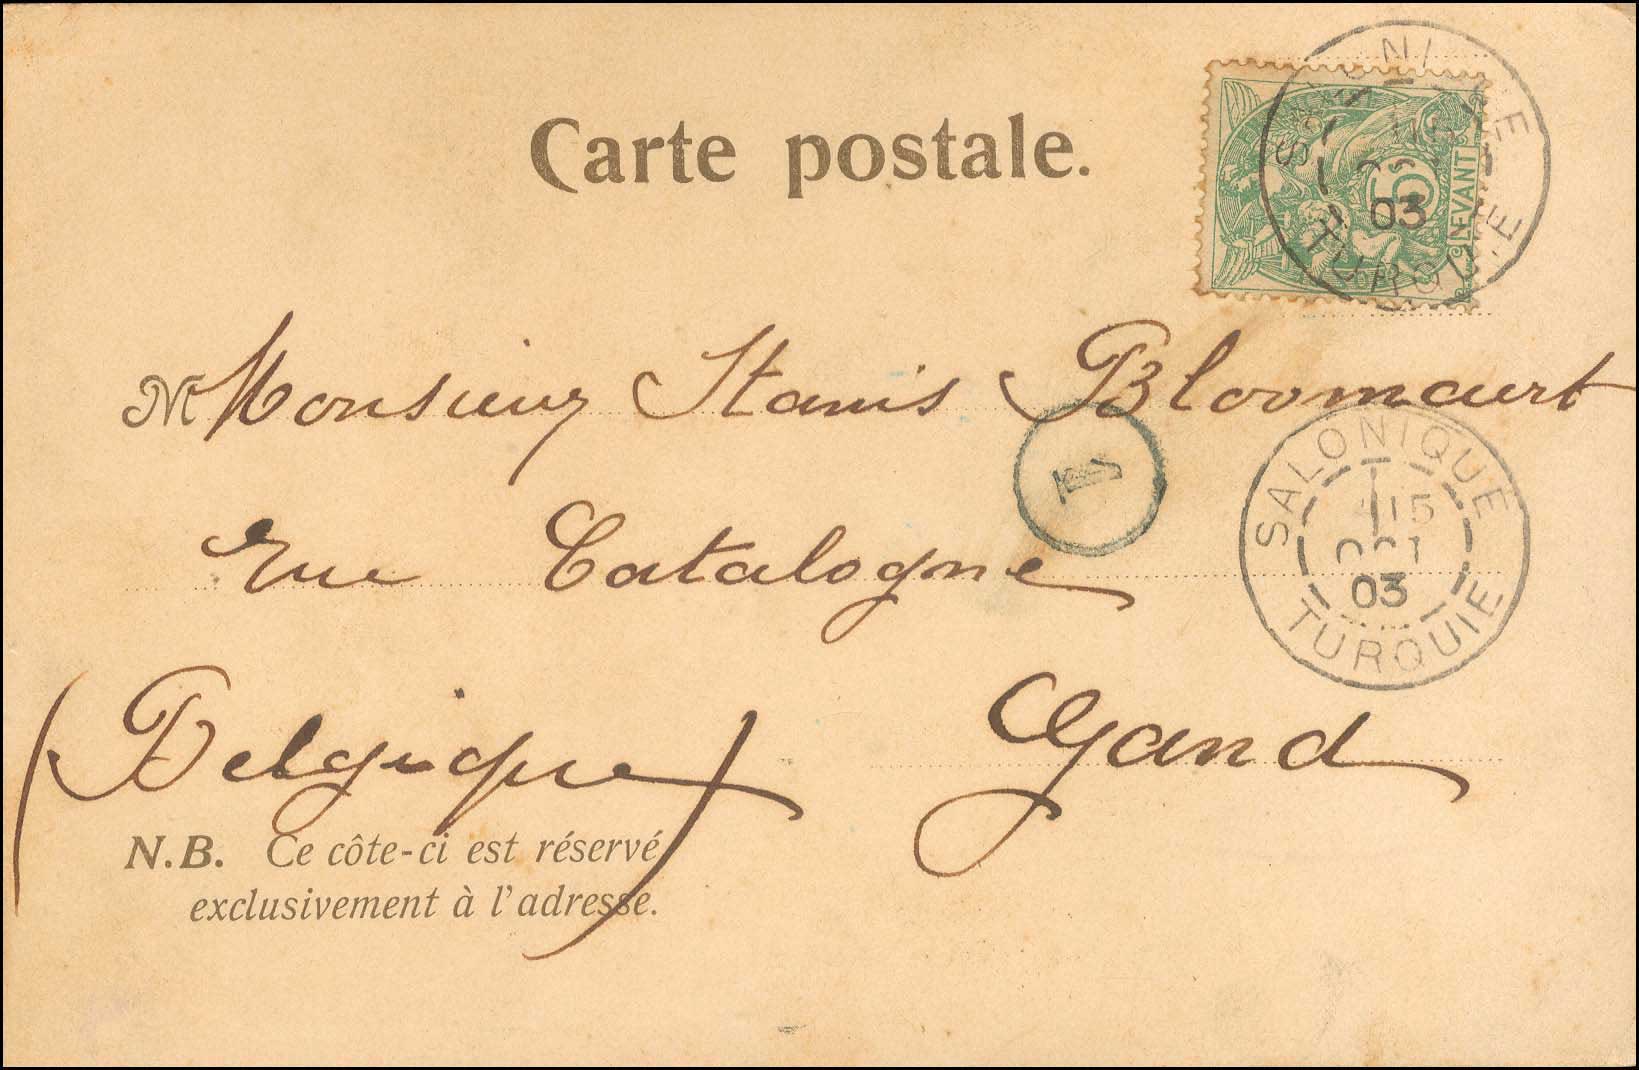 Carte postale.
5
LEVANT
SALONIQUE
03
TURQUIE
M Monsieur Stanis Bloomaert
1
SALONIQUE
15
OCT
03
TURQUIE
rue Catalogne
(Belgique) Gand
N.B. Ce côte-ci est réservé
exclusivement à l'adresse.